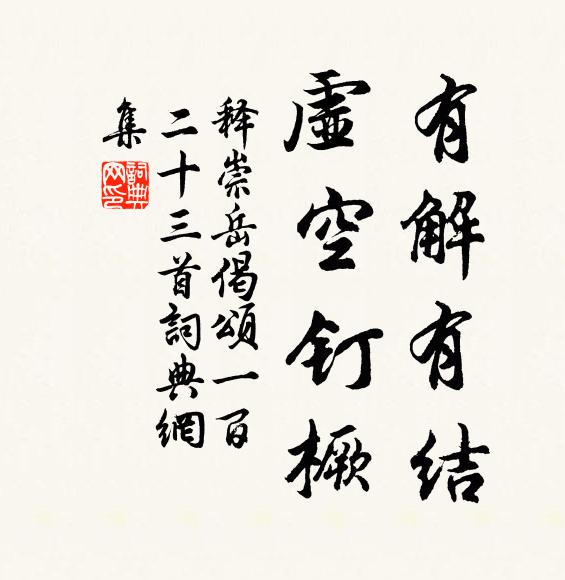 有解有结
虚空钉橛
释崇岳偈颂一百
二十三首词典網
集
詞典
网印